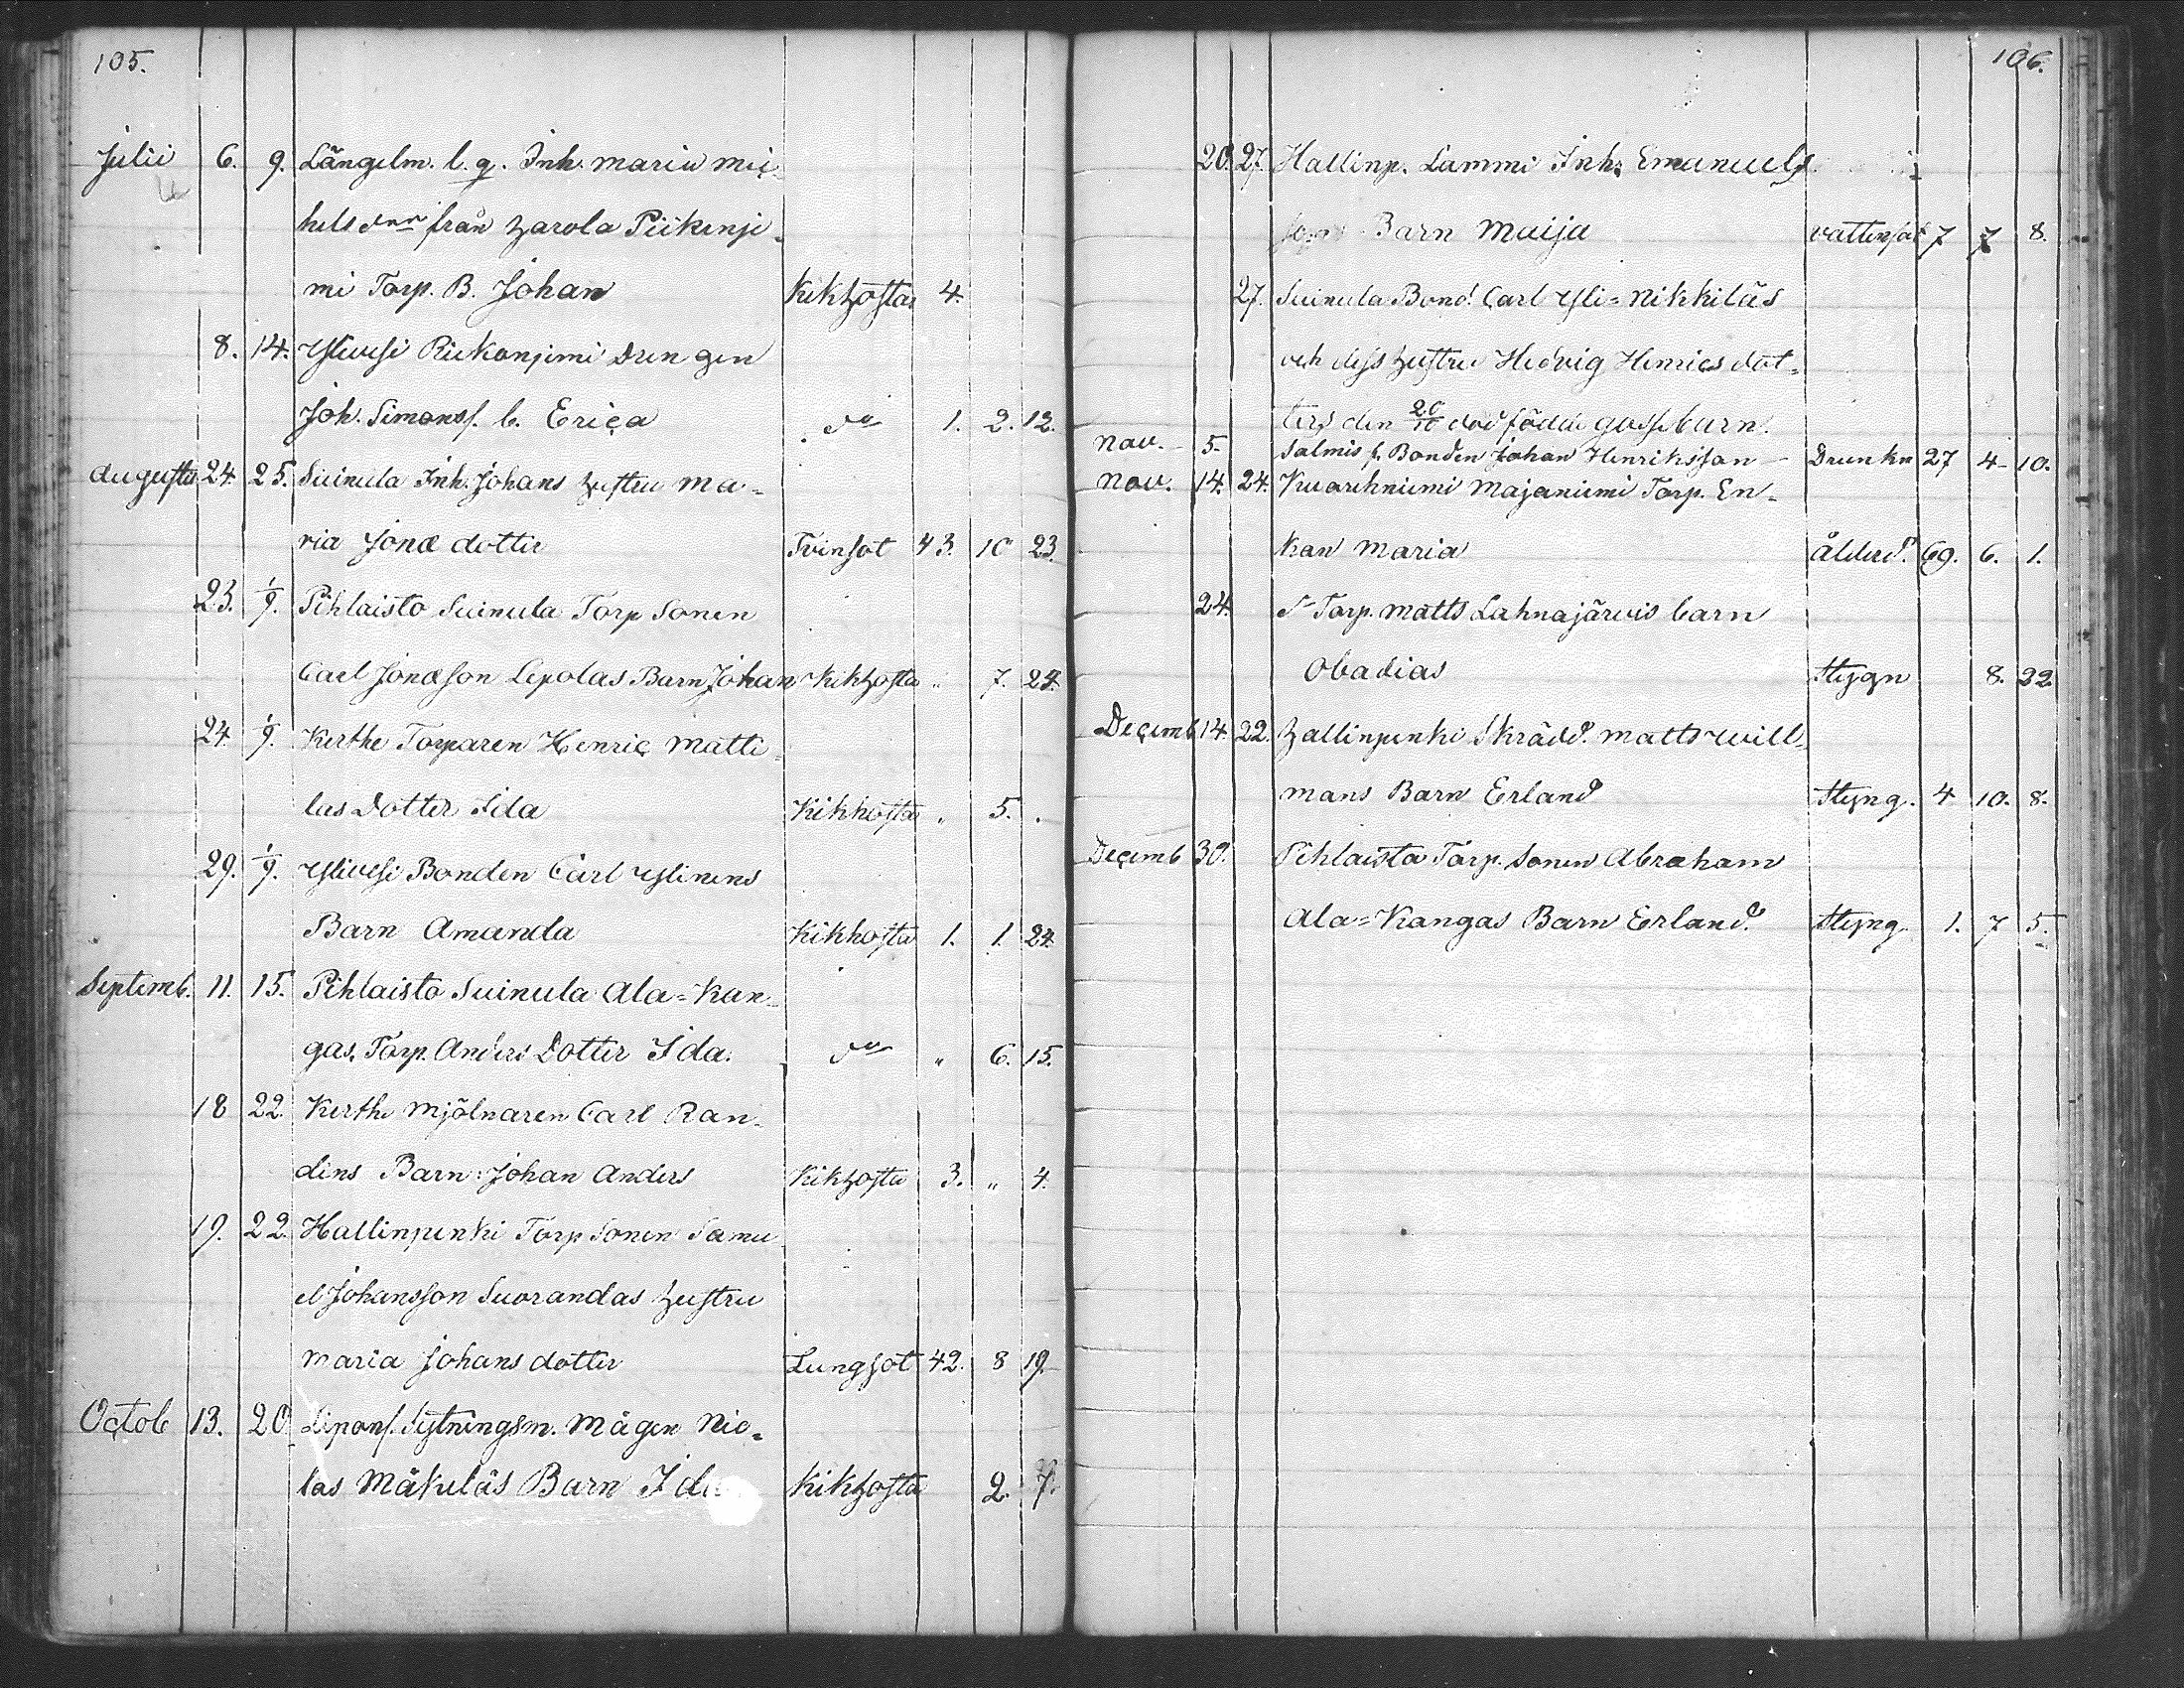 105.
Julii 6. 9. Längelm. l. g. Inh. Maria Mic-
hels dr från Harola Piikinje-
mi Torp. B. Johan Kikhosta 4.
8. 14. Ylivesi Riekonjemi Drengen
Joh. Simons s. b. Erica do 1. 2. 12.
Augusti 24. 25. Suinula Inh. Johans Hustru Ma-
ria Jonæ dotter Tvinsot 43. 10 23.
23. 1/9. Pihlaisto Suinula Torp Sonen
Carl Jonæson Lepolas Barn Johan Kikhosta " 7. 24.
24. 1/9. Kerthe Torparen Henric Matti-
las Dotter Ida Kikhosta " 5. .
29. 1/9. Ylivesi Bonden Carl Ylinens
Barn Amanda Kikhosta 1. 1. 24.
Septemb. 11. 15. Pihlaisto Suinula Ala=Kan-
gas. Torp. Anders Dotter Ida. do " 6. 15.
18 22. Kerthe Mjölnaren Carl Ran-
dins Barn: Johan Anders Kikhosta 3. " 4.
19. 22. Hallinpenki Torp Sonen Samu-
el Johansson Suorandas Hustru
Maria Johans dotter Lungsot 42. 8 19.
Octob 13. 20. Lipons. Sytningsm. Mågen Nic-
las Mäkeläs Barn Ida Kikhosta 2. 7.
106.
20. 27. Hallinp. Lammi Inh. Emanuels
sons Barn Maija vattensot 7 7 8.
27. Suinula Bond. Carl Yli=Nikkiläs
och dess Hustru Hedvig Henrics dot-
ters den 20/10 död födda gosse barn.
Nov. 5. Salmis s. Bonden Johan Henriksson Drunkn 27 4 10.
Nov. 14. 24. Kuorehniemi Majaniemi Torp. En-
kan Maria Ålderd. 69. 6. 1.
24. d:o Torp. Matts Lahnajärvis barn
Obadias Stygn 8. 22
Decemb 14. 22. Hallinpenki Skrädd. Matts Will-
mans Barn Erland Styng. 4 10. 8.
Decemb 30. Pihlaista Torp. Sonen Abraham
Ala=Kangas Barn Erland. Styng 1. 7 5.